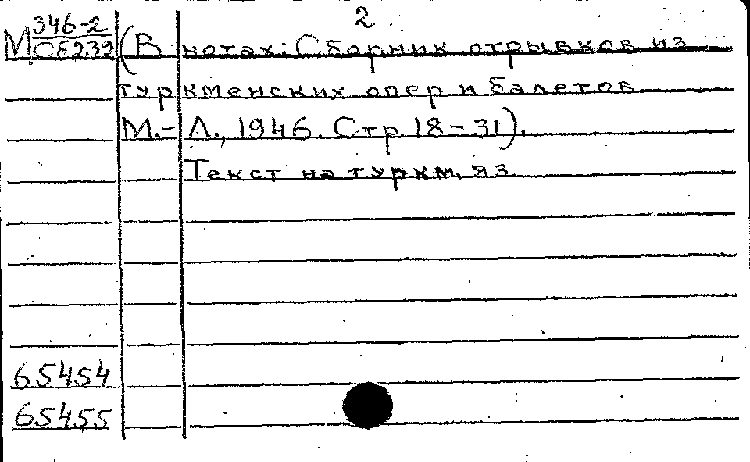 2
М 346-2
Сб232 (В нотах: Сборник отрывков из
туркменских опер и балетов
М.-Л., 1946. Стр. 18-31).
Текст на туркм. яз.
65454
65455